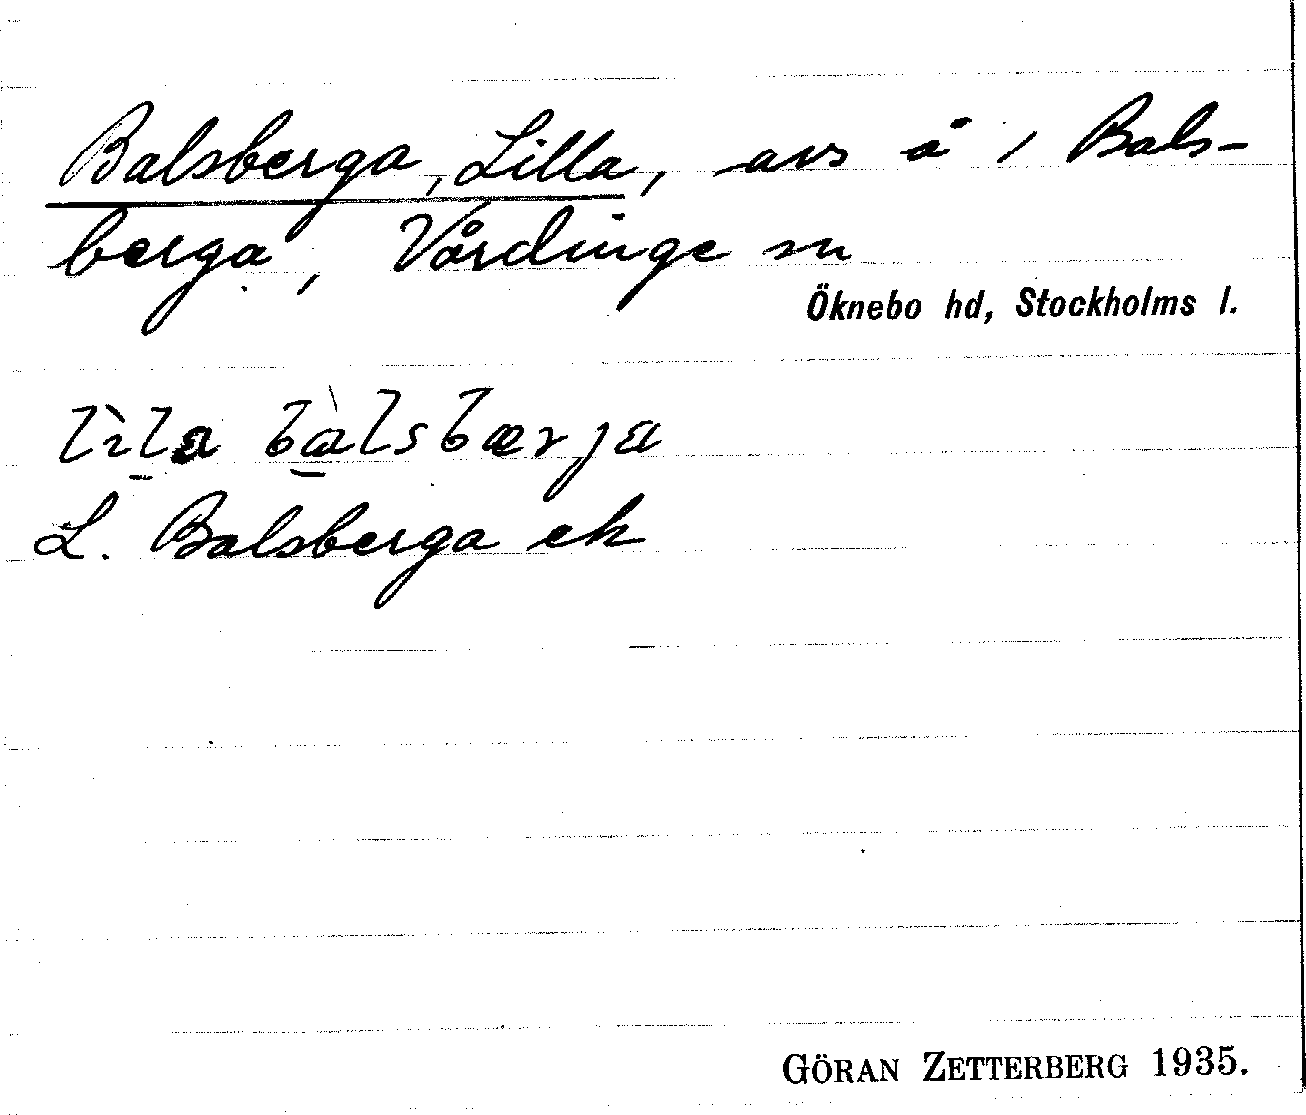 Balsberga, Lilla, avs å 1 Bals-
berga, Vårdinge sn
Öknebo hd, Stockholms l.
lìla bàlsbærja
L. Balsberga ek
GÖRAN ZETTERBERG 1935.